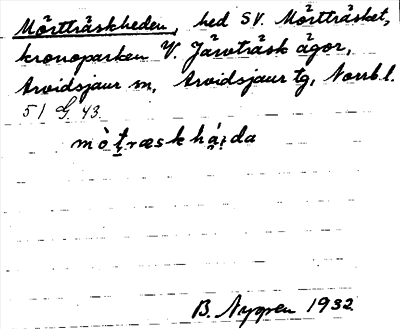 Mörtträskheden, hed SV. Mörtträsket,
kronoparken V. Järvträsk ägor,
Arvidsjaur sn, Arvidsjaur tg, Norrb.l.
51 G 43.
mò̀ṯræskhá̀i̯da
B. Nygren 1932